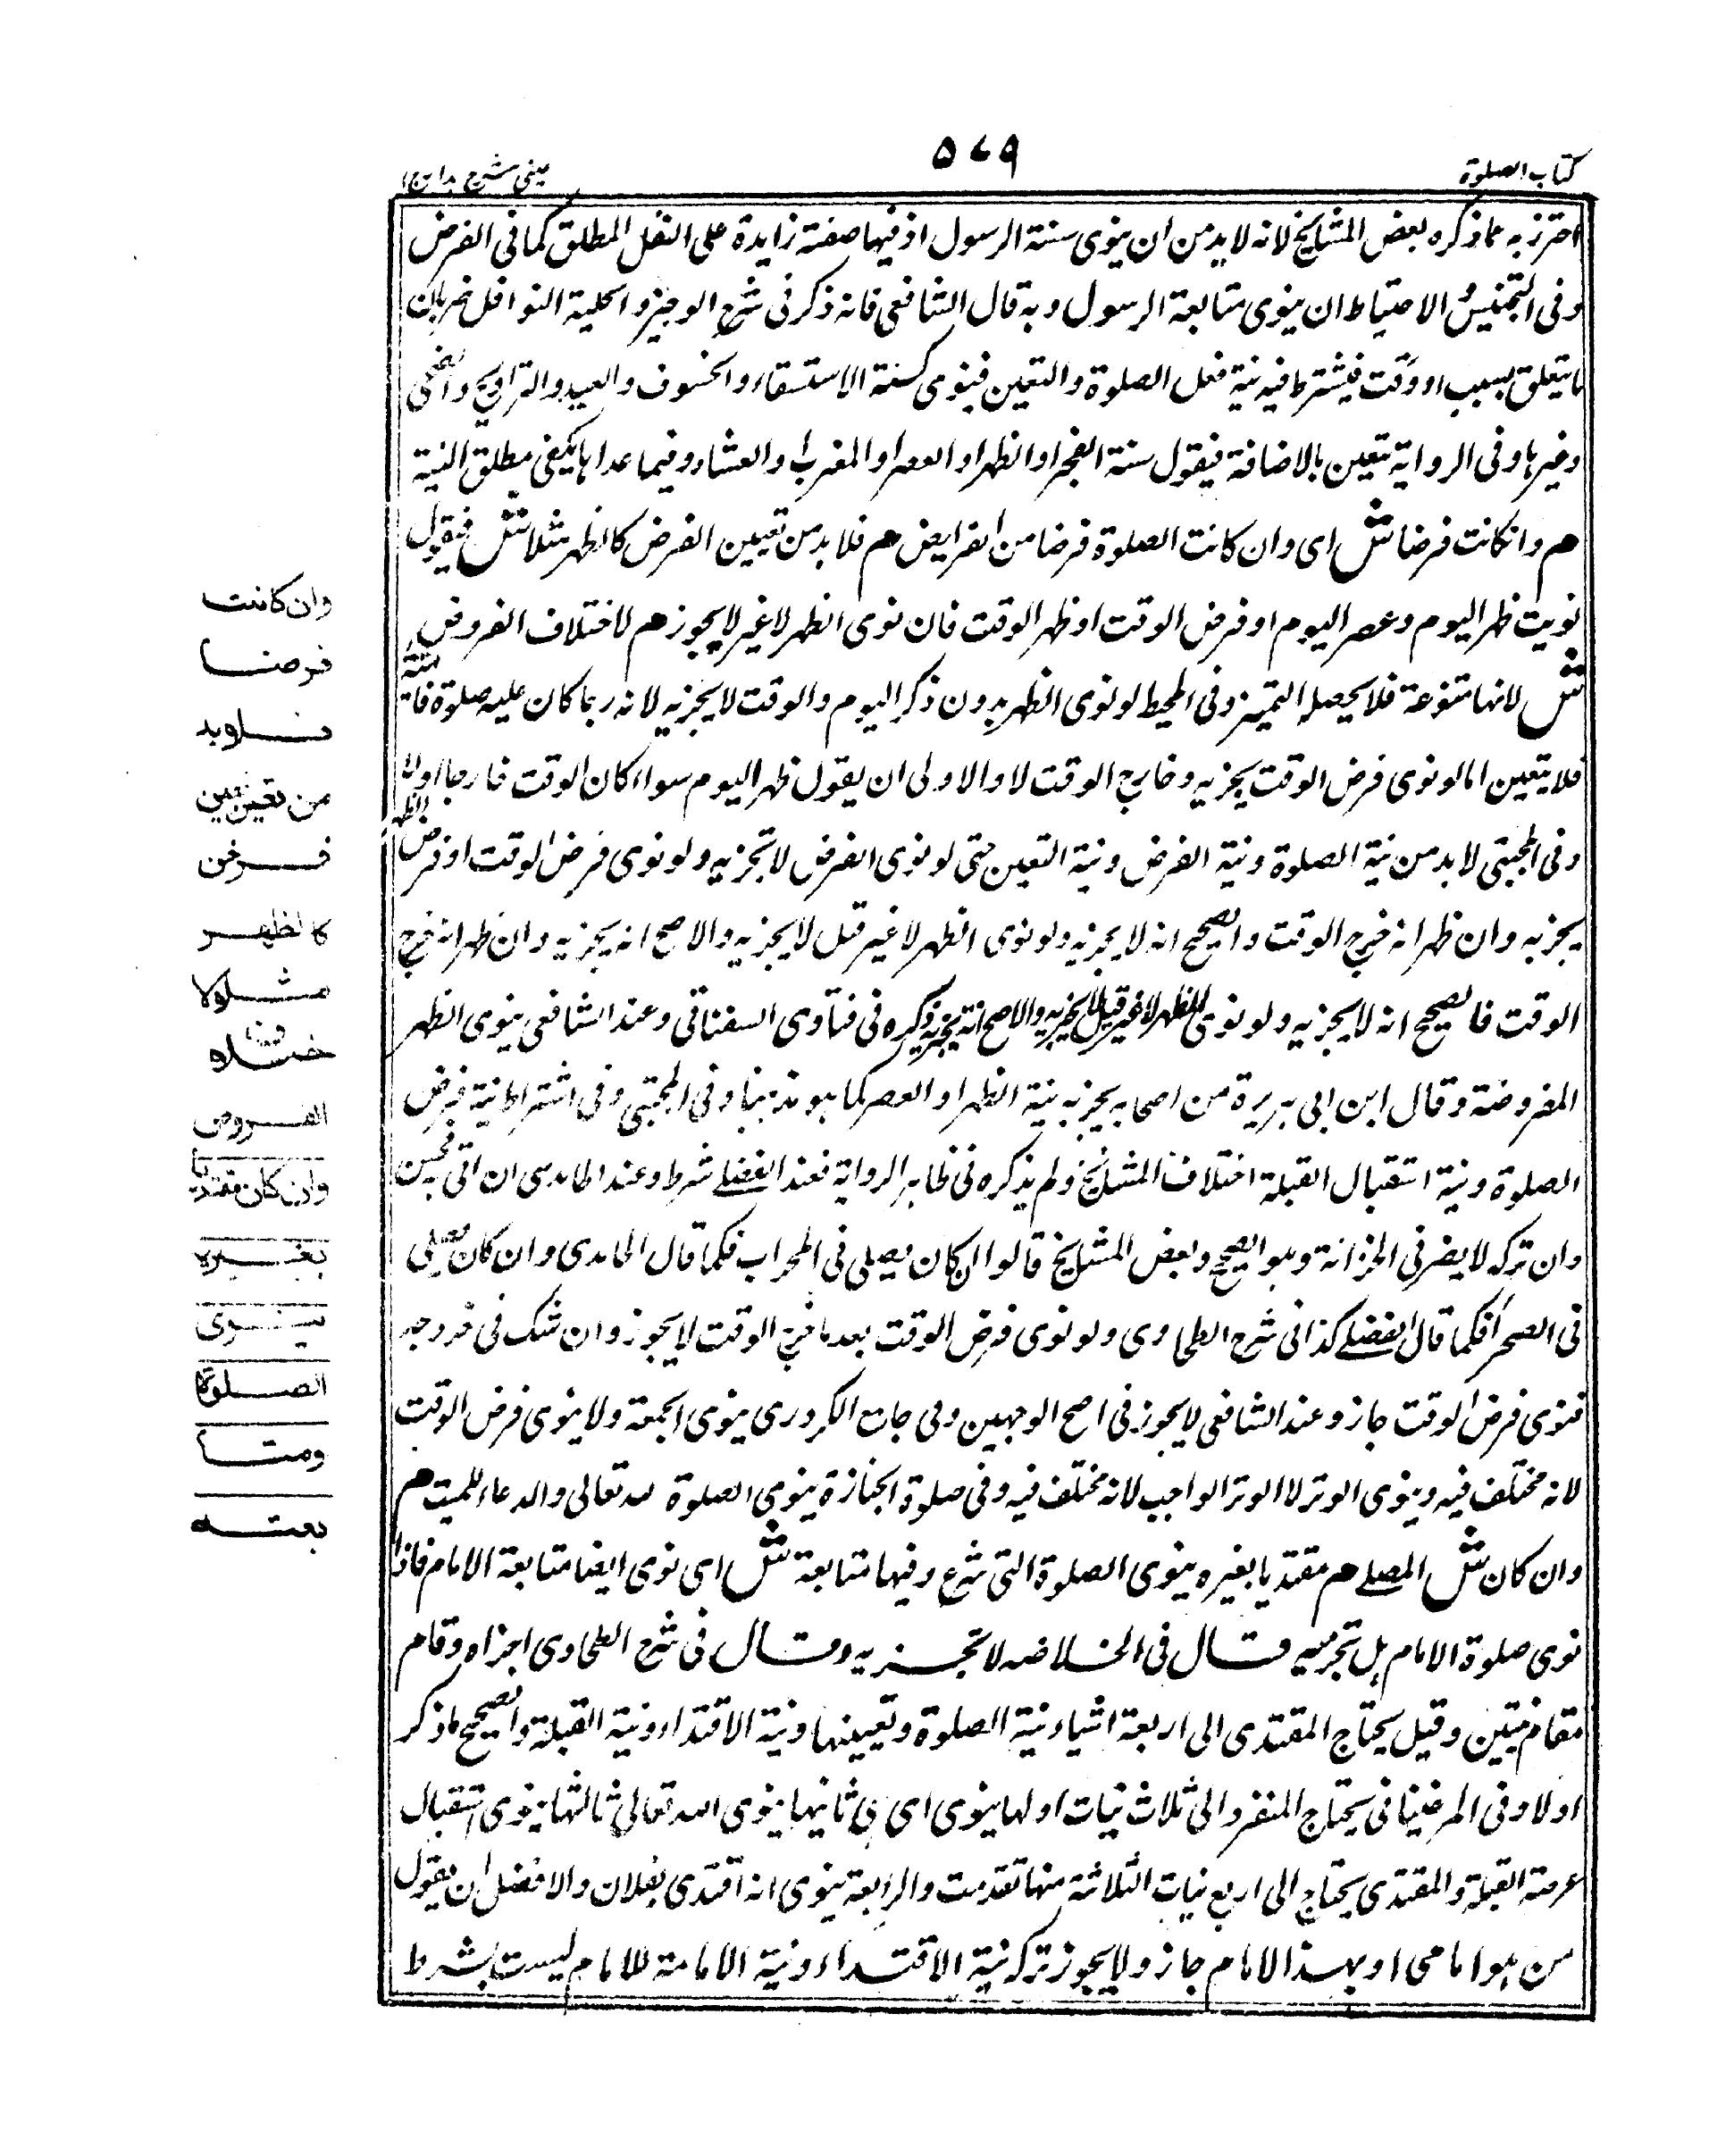 كتاب الصلوة
٥٧٩
عینی شرح ہدایہ ج١
احترز به عما ذكره بعض المشايخ لانه لابد من ان ينوى سنة الرسول اذ فيها صفة زايدة على النفل المطلق كما فى الفرض
وفى التجنيس والاحتياط ان ينوى متابعة الرسول وبه قال الشافعى فانه ذكر فى شرح الوجيز والحلية النوافل ضربان
ما يتعلق بسبب او وقت فيشترط فيه نية فعل الصلوة والتعين فينوى كسنة الاستسقاء والخسوف والعيد والتراويح والضحى
وغيرها وفى الرواية تتعين بالاضافة فيقول سنة الفجر او الظهر او العصر او المغرب او العشاء وفيما عداها يكفى مطلق النية
هم وانكانت فرضا ش اى وان كانت الصلوة فرضا من الفرايض هم فلا بد من تعيين الفرض كالظهر مثلا ش فيقول
نويت ظهر اليوم وعصر اليوم او فرض الوقت او ظهر الوقت فان نوى الظهر لا غير لا يجوز هم لاختلاف الفروض
ش لانها متنوعة فلا يحصل التميز وفى المحيط لو نوى الظهر بدون ذكر اليوم والوقت لا يجزيه لانه ربما كان عليه صلوة فائتة
فلا يتعين اما لو نوى فرض الوقت يجزيه وخارج الوقت لا والاولى ان يقول ظهر اليوم سواء كان الوقت خارجا اولا
وفى المجتبى لا بد من نية الصلوة ونية الفرض ونية التعين حتى لو نوى الفرض لا تجزيه ولو نوى فرض الوقت او فرض الظهر
يجزيه وان ظهر انه خرج الوقت والصحيح انه لا يجزيه ولو نوى الظهر لا غير قيل لا يجزيه والاصح انه يجزيه وان ظهر انه خرج
الوقت فالصحيح انه لا يجزيه ولو نوى الظهر لا غير قيل لا يجزيه والاصح انه يجزيه ذكره فى فتاوى السغناقى وعند الشافعى ينوى الظهر
المفروضة وقال ابن ابى هريرة من اصحابه يجزيه نية الظهر او العصر كما هو مذهبنا وفى المجتبى وفى اشتراط نية فرض
الصلوة ونية استقبال القبلة اختلاف المشايخ ولم يذكره فى ظاهر الرواية فعند الفضلى شرط وعند الحامدى ان اتى به فحسن
وان تركه لا يضر فى الخزانة وهو الصحيح وبعض المشايخ قالوا ان كان يصلى فى المحراب فكما قال الحامدى وان كان يصلى
فى الصحرا فكما قال الفضلى كذا فى شرح الطحاوى ولو نوى فرض الوقت بعد ما خرج الوقت لا يجوز وان شك فى خروجه
فنوى فرض الوقت جاز وعند الشافعى لا يجوز فى اصح الوجهين وفى جامع الكردرى ينوى الجمعة ولا ينوى فرض الوقت
لانه مختلف فيه وينوى الوتر لا الوتر الواجب لانه مختلف فيه وفى صلوة الجنازة ينوى الصلوة لله تعالى والدعاء للميت هم
وان كان ش المصلى هم مقتديا بغيره ينوى الصلوة التى شرع وفيها متابعة ش اى نوى ايضا متابعة الامام فاذا
نوى صلوة الامام هل تجزيه قال فى الخلاصه لا تجزيه وقال فى شرح الطحاوى اجزاه وقام
مقام نيتين وقيل يحتاج المقتدى الى اربعة اشياء نية الصلوة وتعيينها ونية الاقتداء ونية القبلة والصحيح ما ذكر
اولا وفى المرغينانى يحتاج المنفرد الى ثلاث نيات اولها ينوى اى هى ثانيها ينوى الله تعالى ثالثها ينوى استقبال
عرصة القبلة والمقتدى يحتاج الى اربع نيات الثلاثة منها تقدمت والرابعة ينوى انه اقتدى بفلان والافضل ان يقول
من هو امامى او بهذا الامام جاز ولا يجوز ترك نية الاقتداء ونية الامامة للامام ليست بشرط
وان كانت
فرضا
فلابد
من تعيين
فرض
كالظهر
مثلا لا
ختلاف
الفروض
وان كان مقتديا
بغيره
ينوى
الصلوة
ومتا
بعته